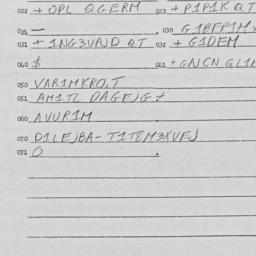 022 + OPL OGERM 023 + P1P1K QT
024 — 030 G1BFP1M
031 + 1NG3VAJD QT 032 + G1DEM
040 $ 041 + GNCN GL1
050 VAR1MKRO,T
051 AM1TL DAGEJG +
060 AVUP1M
070 D1LEJBA-T1T8M3XVEJ
071 O